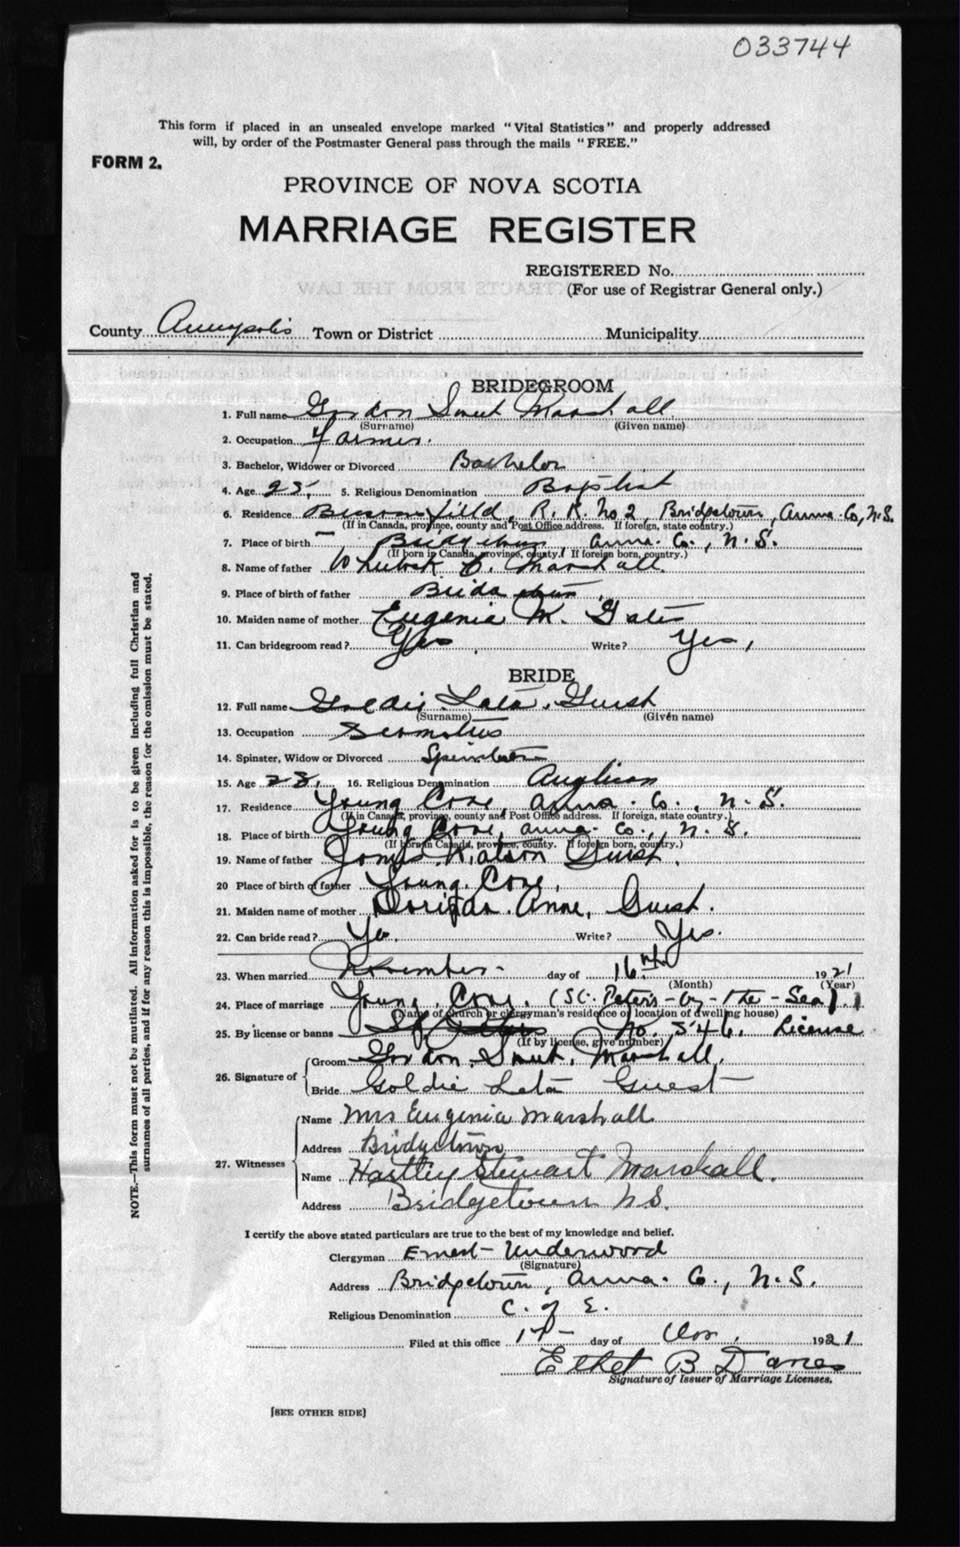 033744
This form if placed in an unsealed envelope marked "Vital Statistics" and properly addressed
will, by order of the Postmaster General pass through the mails "FREE."
FORM 2.
PROVINCE OF NOVA SCOTIA
MARRIAGE REGISTER
REGISTERED No.
(For use of Registrar General only.)
County Annapolis Town or District Municipality
BRIDEGROOM
1. Full name Gordon Marshall
(Surname) (Given name)
2. Occupation Farmer.
3. Bachelor, Widower or Divorced Bachelor
4. Age 23, 5. Religious Denomination Baptist
6. Residence R. R. No 2, Bridgetown, Anna. Co, N.S.
(If in Canada, province, county and Post Office address. If foreign, state country.)
7. Place of birth Bridgetown Anna. Co., N.S.
(If born in Canada, province, county. If foreign born, country.)
8. Name of father Marshall
9. Place of birth of father
10. Maiden name of mother Eugenia M.
11. Can bridegroom read? Yes Write? Yes,
BRIDE
12. Full name Goldie Leta Guest
(Surname) (Given name)
13. Occupation
14. Spinster, Widow or Divorced Spinster
15. Age 28, 16. Religious Denomination Anglican
17. Residence Young Cove, Anna. Co., N.S.
(If in Canada, province, county and Post Office address. If foreign, state country.)
18. Place of birth Young Cove, Anna. Co., N.S.
(If born in Canada, province, county. If foreign born, country.)
19. Name of father Watson Guest.
20 Place of birth of father Young Cove,
21. Maiden name of mother Anne, Guest.
22. Can bride read? Yes. Write? Yes.
23. When married November day of 16 1921
(Month) (Year)
24. Place of marriage Young Cove. (St. Peters-by-the-Sea)
(Name of church or clergyman's residence or location of dwelling house)
25. By license or banns No. 546. License
(If by license, give number)
26. Signature of
Groom Gordon Marshall.
Bride Goldie Leta Guest
27. Witnesses
Name Mrs Eugenia Marshall
Address Bridgetown
Name Hartley Stewart Marshall.
Address Bridgetown N.S.
I certify the above stated particulars are true to the best of my knowledge and belief.
Clergyman Ernest Underwood
(Signature)
Address Bridgetown, Anna. Co., N.S.
Religious Denomination C. of E.
Filed at this office 17 day of Nov. 1921
Ethel B
Signature of Issuer of Marriage Licenses.
[SEE OTHER SIDE]
NOTE.—This form must not be mutilated. All information asked for is to be given including full Christian and
surnames of all parties, and if for any reason this is impossible, the reason for the omission must be stated.